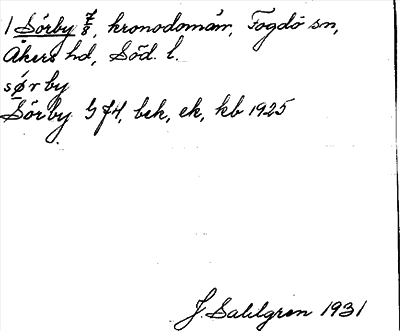 1 Sörby 7/8, kronodomän, Fogdö sn,
Åkers hd, Söd. l.
sør by
Sörby G 74, bek, ek, kb 1925
J. Sahlgren 1931